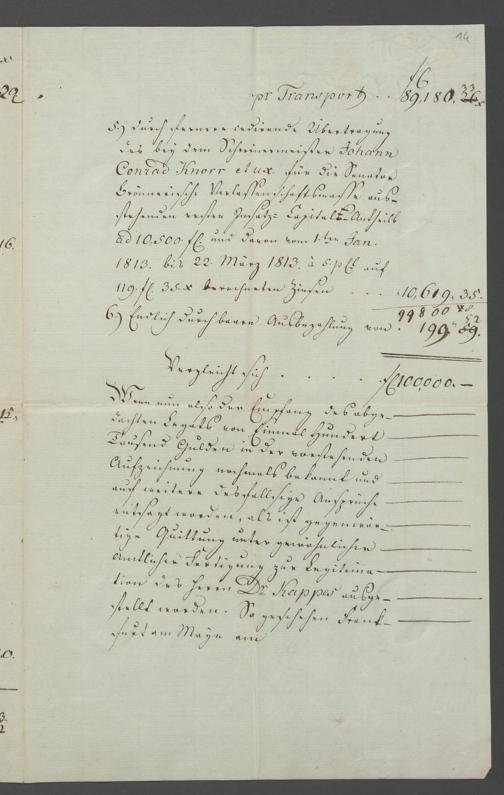 14
fG
pr Transport . . 89,180. 33
36 x
5.) durch fernere cedirende Übertragung
des bey dem Schreinermeister Johann
Conrad Knorr et ux. für die Senator
Brönnerische Verlassenschaftsmasse aus-
stehenden ersten Insatz-Capital-Antheils
ad 10,500 f. und davon vom 1.ten Jan.
1813. bis 22. März 1813. à 5 pC. auf
119. f. 35 x berechneten Zinsen . . . 10,619. 35.
99800
6.) Endlich durch baare Ausbezahlung von . 199.
Vergleicht sich . . . . . f. 100,000. —
Wenn nun also der Empfang des abge-
dachten Legats von Einmal Hundert
Tausend Gulden in der vorstehenden
Aufzeichnung nochmals bekannt und
auf weitere desfallsige Ansprüche
entsagt worden, als ist gegenwär-
tige Quittung unter gewöhnlicher
amtlicher Fertigung zur Legitima-
tion des Herrn Dr. Kappes ausge-
stellt worden. So geschehen Frank-
furt am Mayn am
29
16.
15.
0.